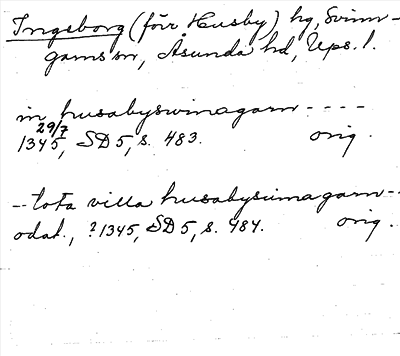 Ingeborg (förr Husby) hg, Svinn-
garns sn, Åsunda hd, Ups. l.
in husabyswinagarn - - - -
29/7
1345, SD 5, s. 483. orig.
-- tota villa husabysuinagarn --
odat., ? 1345, SD 5, s. 484. orig.